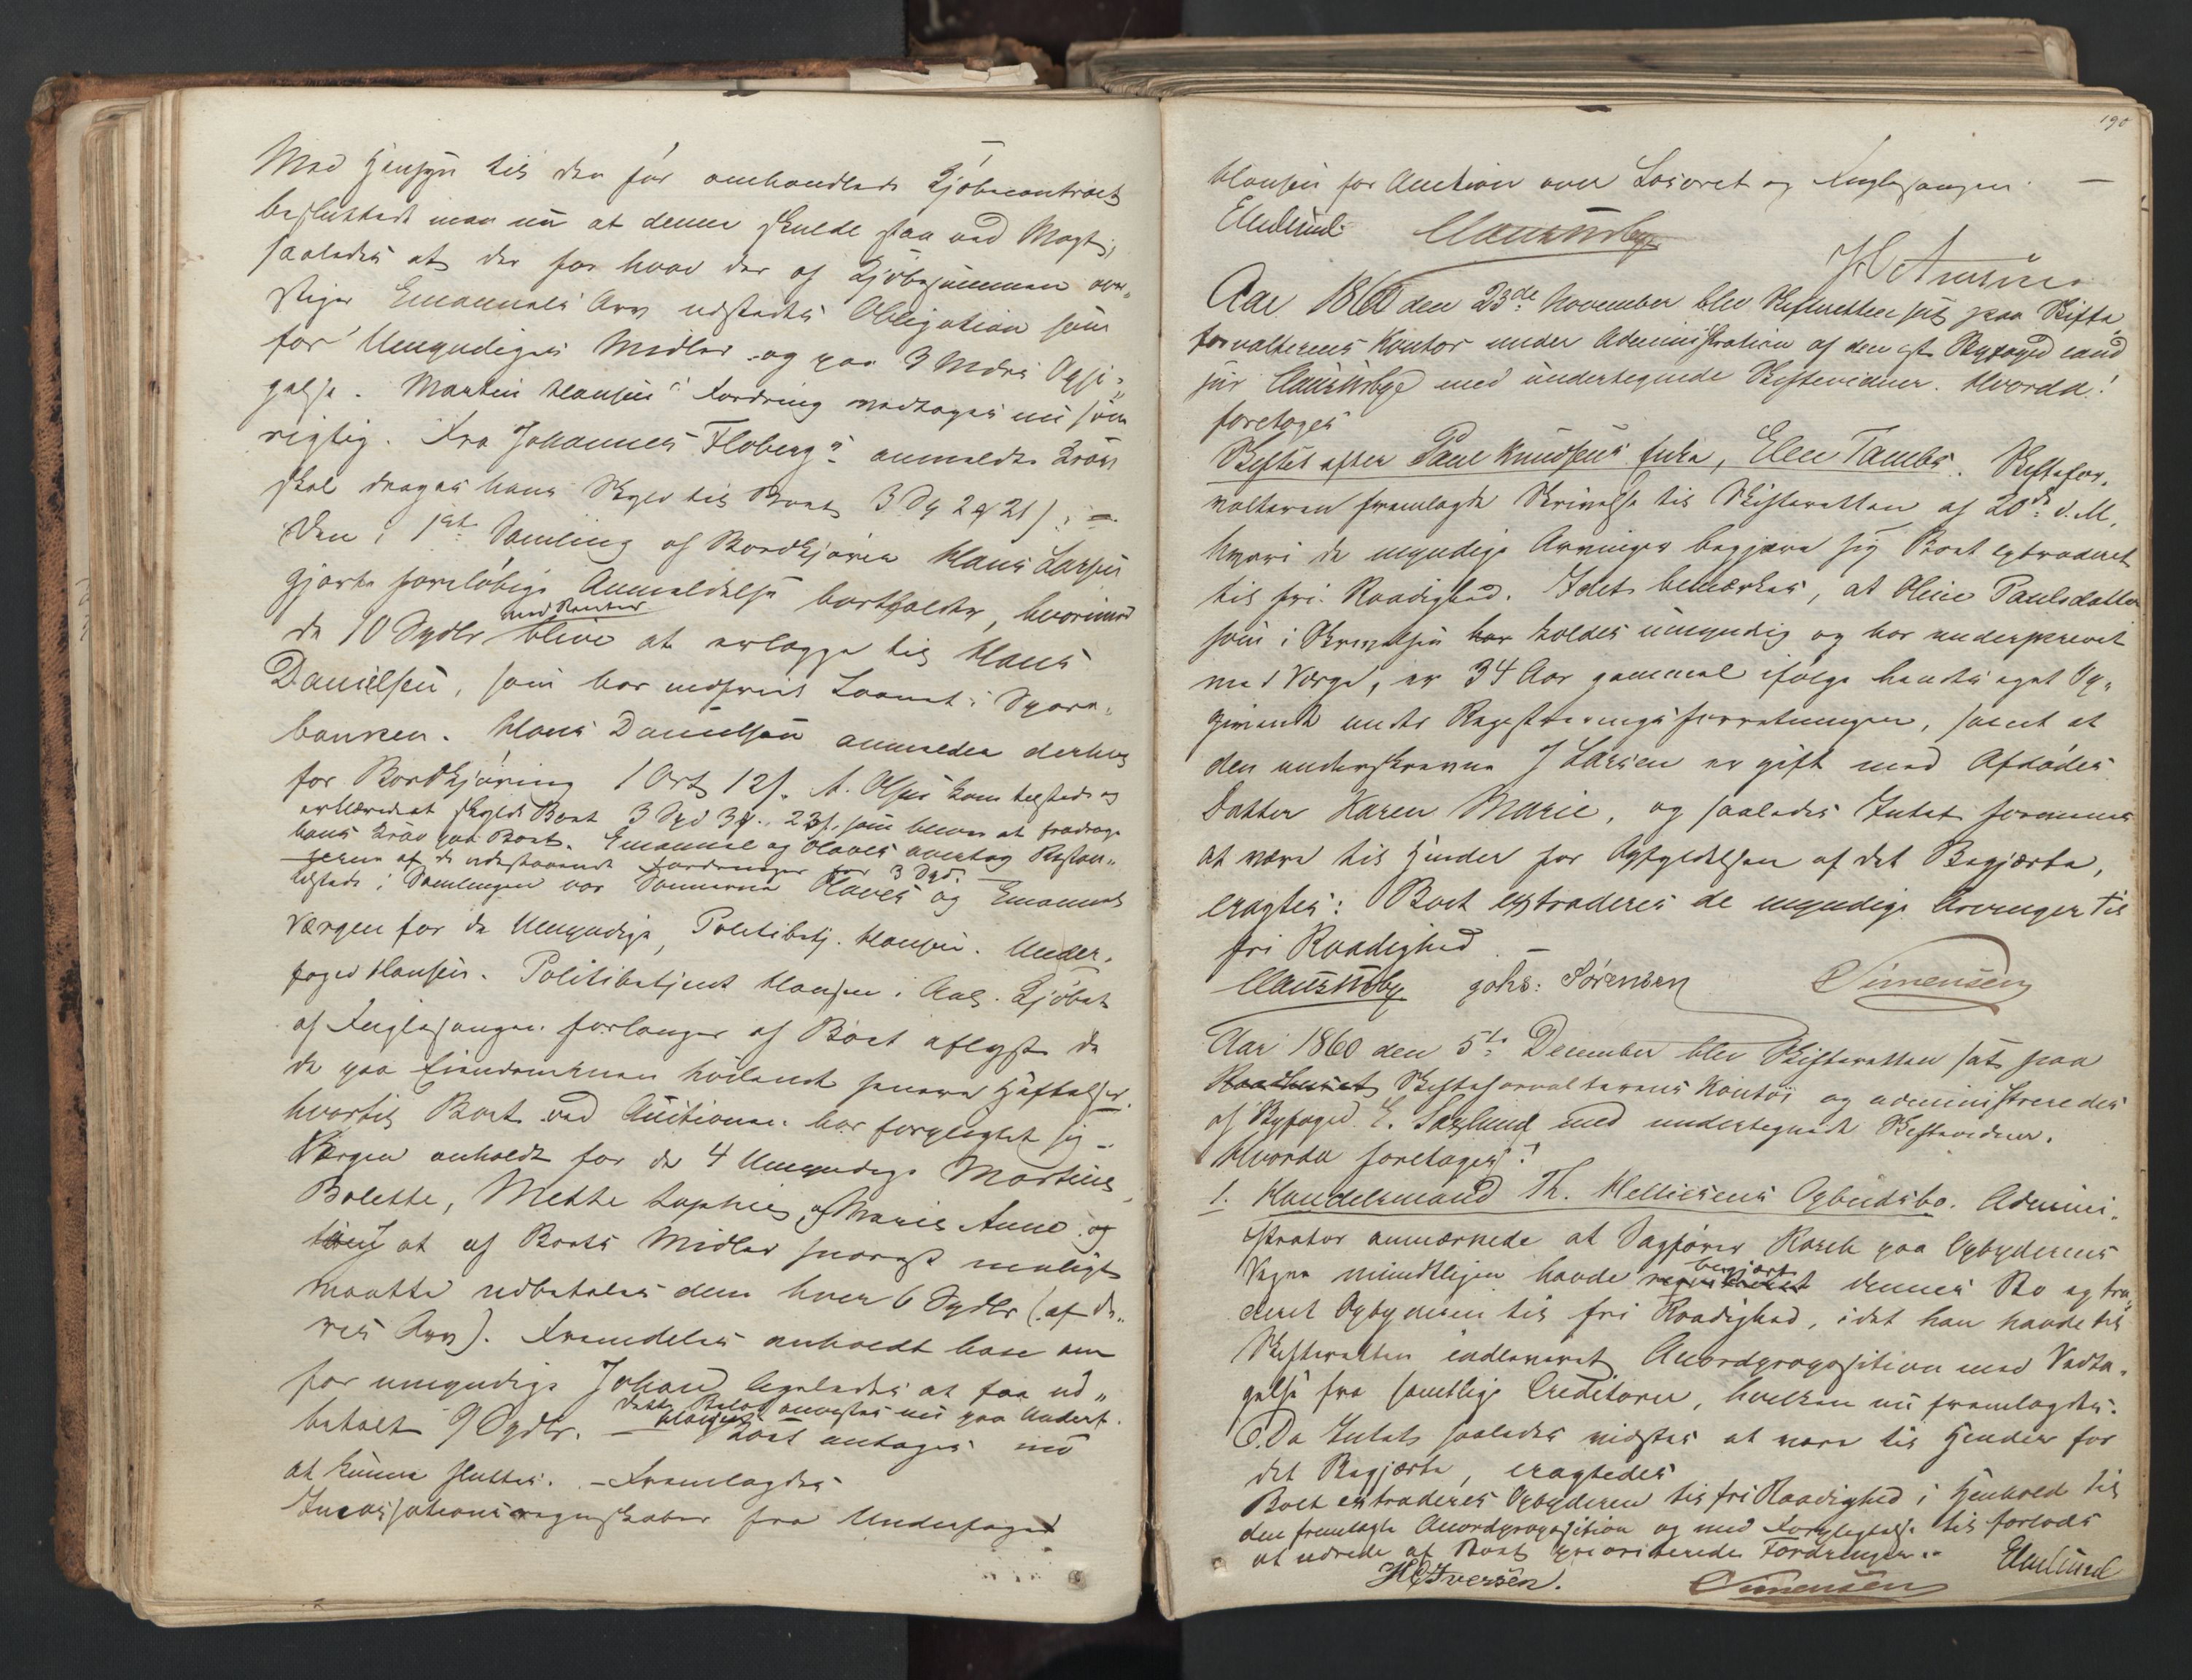 Med Hensyn til den før omhandlede Kjøbecontract
besluttede man nu at denne skulde staa ved Magt,
saaledes at der for hvad der af Kjøbesummen over„
stiger Emanuels Arv udstedes Obligation som
for Umyndiges Midler og paa 3 Mdrs Opsi„
gelse. Martin Hansens Fordring vedtoges nu som
rigtig. Fra Johannes Floberg's anmeldte Krav
skal drages hans Skyld til Boet 3 Spd 2 ort 21 s; —
Den i 1ste Samling af Bordkjører Hans Larsen
gjorte foreløbige Anmeldelse bortfalder, hvorimod
de 10 Spdlr med Renter blive at erlægge til Hans
Danielsen, som har indfriet Laanet i Spare„
banken. Hans Danielsen anmeldte derhos
for Bordkjøring 1 Ort 12 s. A. Olsen kom tilstede og
erklærede at skylde Boet 3 Spd 3 ort 23 s, som bliver at fradrage
hans Krav paa Boet. Emanuel og Olaves overtog Restan„
cerne af de udestaaende Fordringer for 3 Spd. —
tilstede i Samlingen var Sønnerne Olaves og Emanuel
Værgen for de Umyndige, Politibetj. Hansen. Under„
foged Hansen. Politibetjent Hansen i Anl. Kjøbet
af Fuglesangen forlanger af Boet aflyst de
de paa Eiendommen hvilende senere Hæftelser
hvortil Boet ved Auctionen har forpligtet sig —
Værgen anholdt for de 4 Umyndige Martine
Bolette, Mette Sophie, Marie Anne og
at af Boets Midler snarest muligt
maatte udbetales dem hver 6 Spdlr (af de„
res Arv). Fremdeles anholdt han om
for umyndige Johan ligeledes at faa ud„
betalt 9 Spdlr. — dette Beløb anvistes nu paa Underf.
Hansen Boet antages nu
at kunne sluttes. — Fremlagdes
Incassationsregnskaber fra Underfoged
190
Hansen for Auction over Løsøret og Fuglesangen. —
EMLund
Aar 1860 den 23de November blev Skifteretten sat paa Skifte„
forvalterens Kontor under Administration af den cst. Byfoged cand
jur med undertegnede Skiftevidner. Hvorda!
foretoges
Skiftet efter Paul Knudsens Enke, Elen Tambs. Skiftefor„
valteren fremlagde Skrivelse til Skifteretten af 20de d. M.
hvori de myndige Arvinger begjære sig Boet extraderet
til fri Raadighed. Idet bemærkes, at Oline Paulsdatter
som i Skrivelsen har holdes umyndig og har underskrevet
med Værge, er 34 Aar gammel ifølge hendes eget Op„
givende under Registreringsforretningen, samt at
den underskrevne J Larsen er gift med Afdødes
Datter Karen Marie, og saaledes Intet formenes
at være til Hinder for Opfyldelsen af det Begjærte,
eragtes: Boet extraderes de myndige Arvinger til
fri Raadighed. —
Johs: Sørensen Simensen
Aar 1860 den 5te December blev Skifteretten sat paa
Raadhuset Skifteforvalterens Kontor og administreredes
af Byfoged E. med undertegnede Skiftevidner.
Hvorda foretoges!
1. Handelsmand Th. Opbudsbo. Admini„
strator anmærkede at Sagfører Rosch paa Opbyderens
Vegne mundtligen havde begjært dennes Bo extra„
deret Opbyderen til fri Raadighed, idet han havde til
Skifteretten indleveret Accordproposition med Vedta„
gelse fra samtlige Creditorer, hvilken nu fremlagdes.
Da Intet saaledes vidstes at være til Hinder for
det Begjærte, eragtedes
Boet extraderes Opbyderen til fri Raadighed i Henhold til
den fremlagte Accordproposition og med Forpligtelse til forlods
at udrede af Boet prioriterede Fordringer. —
HCIversen. Simensen EMLund